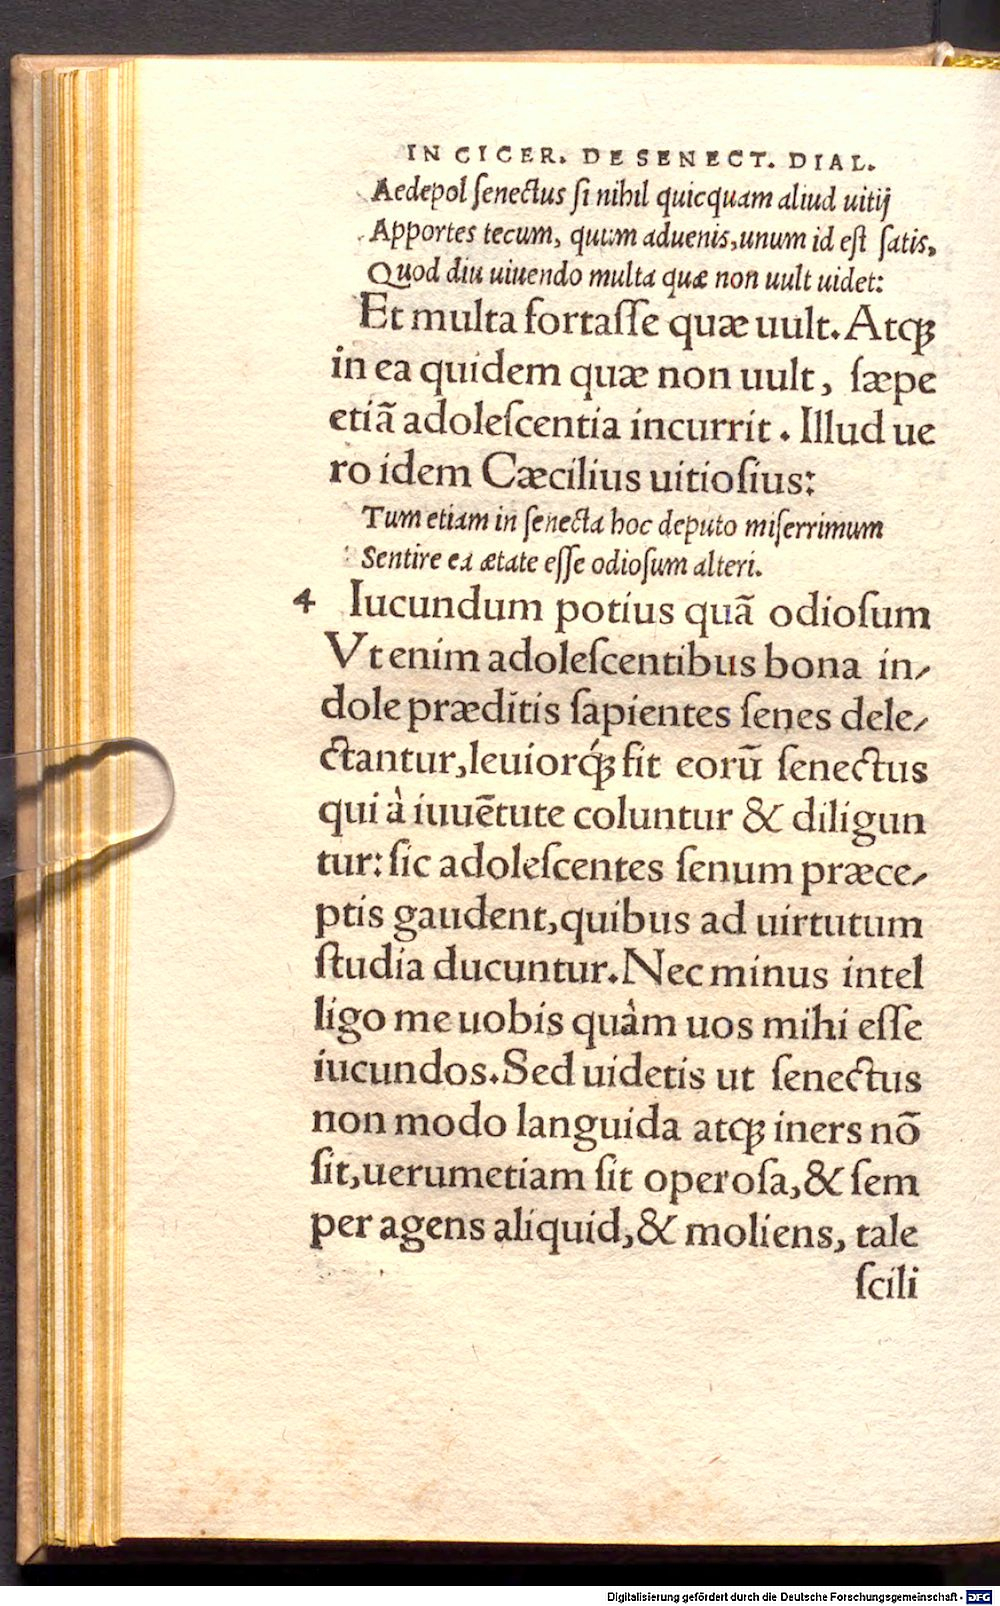 IN CICER. DE SENECT. DIAL.
Aedepol ſenectus ſi nihil quicquam aliud uitij
Apportes tecum, quum aduenis, unum id eſt ſatis,
Quod diu uiuendo multa quæ non uult uidet:
Et multa fortaſſe quæ uult. Atqꝫ
in ea quidem quæ non uult, ſæpe
etiã adoleſcentia incurrit. Illud ue
ro idem Cæcilius uitioſius:
Tum etiam in ſenecta hoc deputo miſerrimum
Sentire ea ætate eſſe odioſum alteri.
4 Iucundum potius quã odioſum
Vt enim adoleſcentibus bona in⸗
dole præditis ſapientes ſenes dele⸗
ctantur, leuiorq́ꝫ fit eorũ ſenectus
qui à iuuẽtute coluntur & diligun
tur: ſic adoleſcentes ſenum præce⸗
ptis gaudent, quibus ad uirtutum
ſtudia ducuntur. Nec minus intel
ligo me uobis quàm uos mihi eſſe
iucundos. Sed uidetis ut ſenectus
non modo languida atqꝫ iners nõ
ſit, uerumetiam ſit operoſa, & ſem
per agens aliquid, & moliens, tale
ſcili
Digitalisierung gefördert durch die Deutsche Forschungsgemeinschaft - DFG